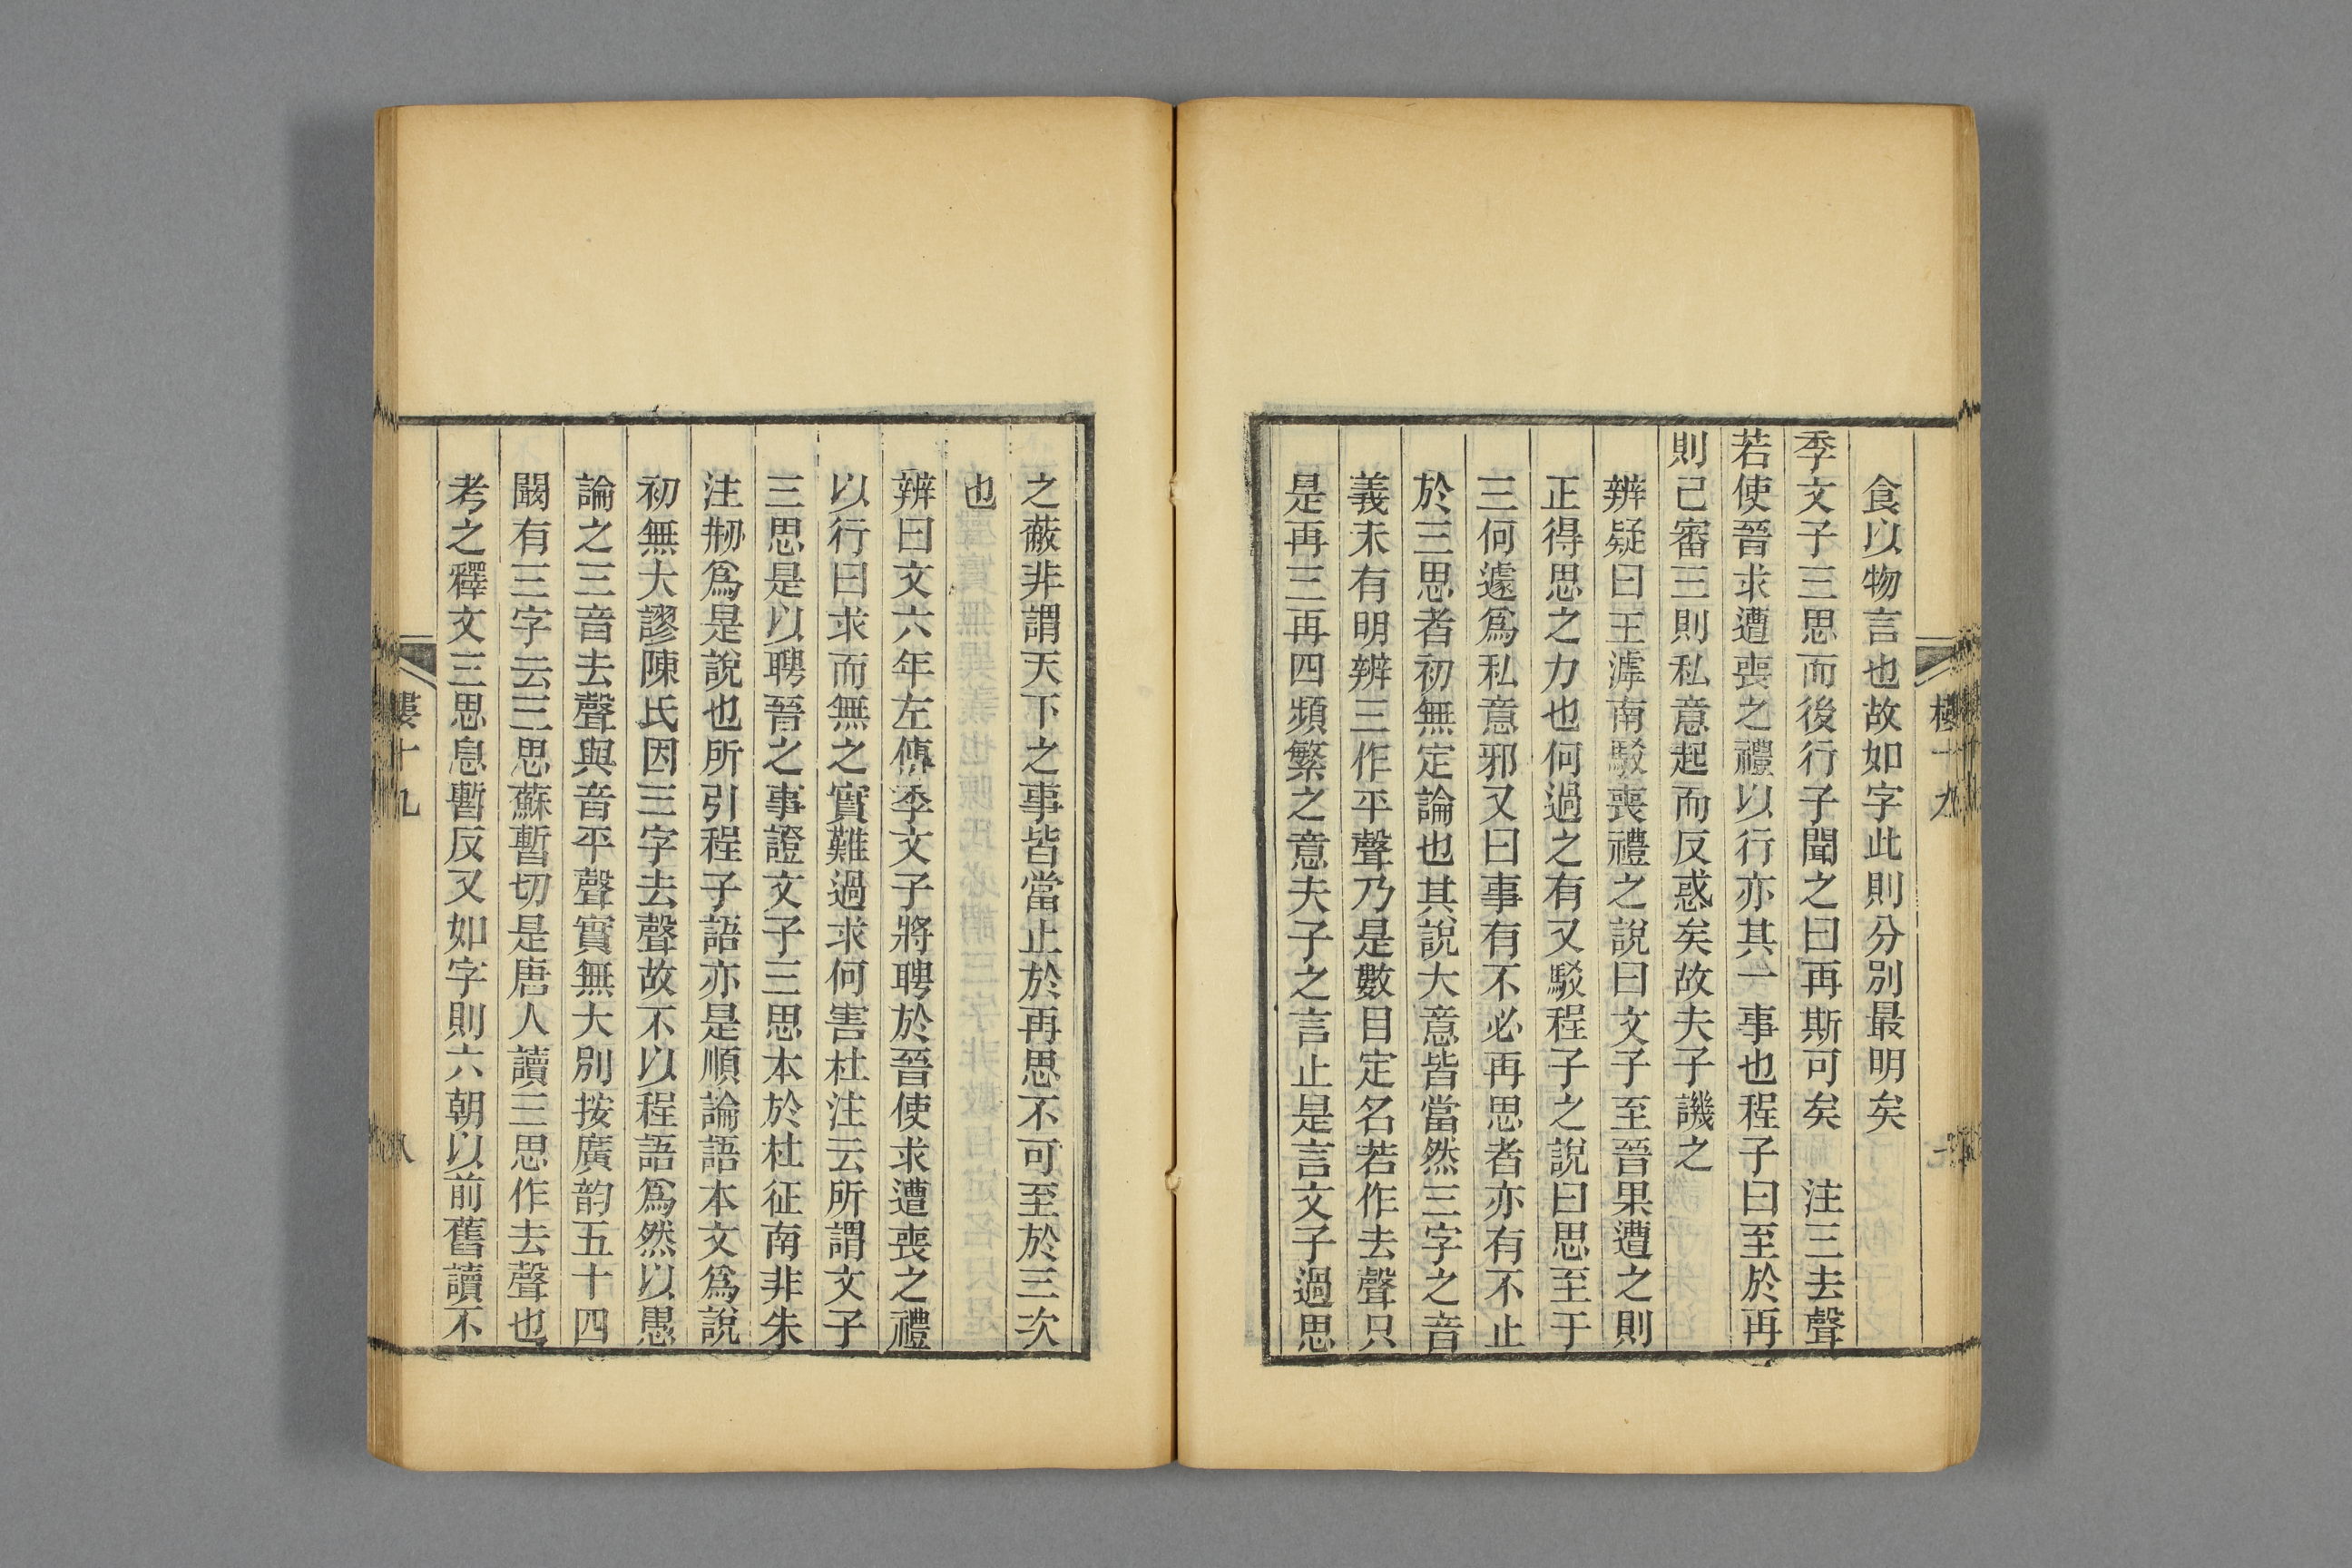 食以物言也故如字此則分別最明矣
季文子三思而後行子聞之曰再斯可矣　注三去聲
若使晉求遭喪之禮以行亦其一事也程子曰至於再
則已審三則私意起而反惑矣故夫子譏之
辨疑曰王滹南駁喪禮之說曰文子至晉果遭之則
正得思之力也何過之有又駁程子之說曰思至于
三何遽爲私意邪又曰事有不必再思者亦有不止
於三思者初無定論也其說大意皆當然三字之音
義未有明辨三作平聲乃是數目定名若作去聲只
是再三再四頻繁之意夫子之言止是言文子過思
之蔽非謂天下之事皆當止於再思不可至於三次
也
辨曰文六年左傳季文子將聘於晉使求遭喪之禮
以行曰求而無之實難過求何害杜注云所謂文子
三思是以聘晉之事證文子三思本於杜征南非朱
注刱爲是說也所引程子語亦是順論語本文爲說
初無大謬陳氏因三字去聲故不以程語爲然以愚
論之三音去聲與音平聲實無大別按廣韵五十四
闞有三字云三思蘇暫切是唐人讀三思作去聲也
考之釋文三思息暫反又如字則六朝以前舊讀不
樓十九
八